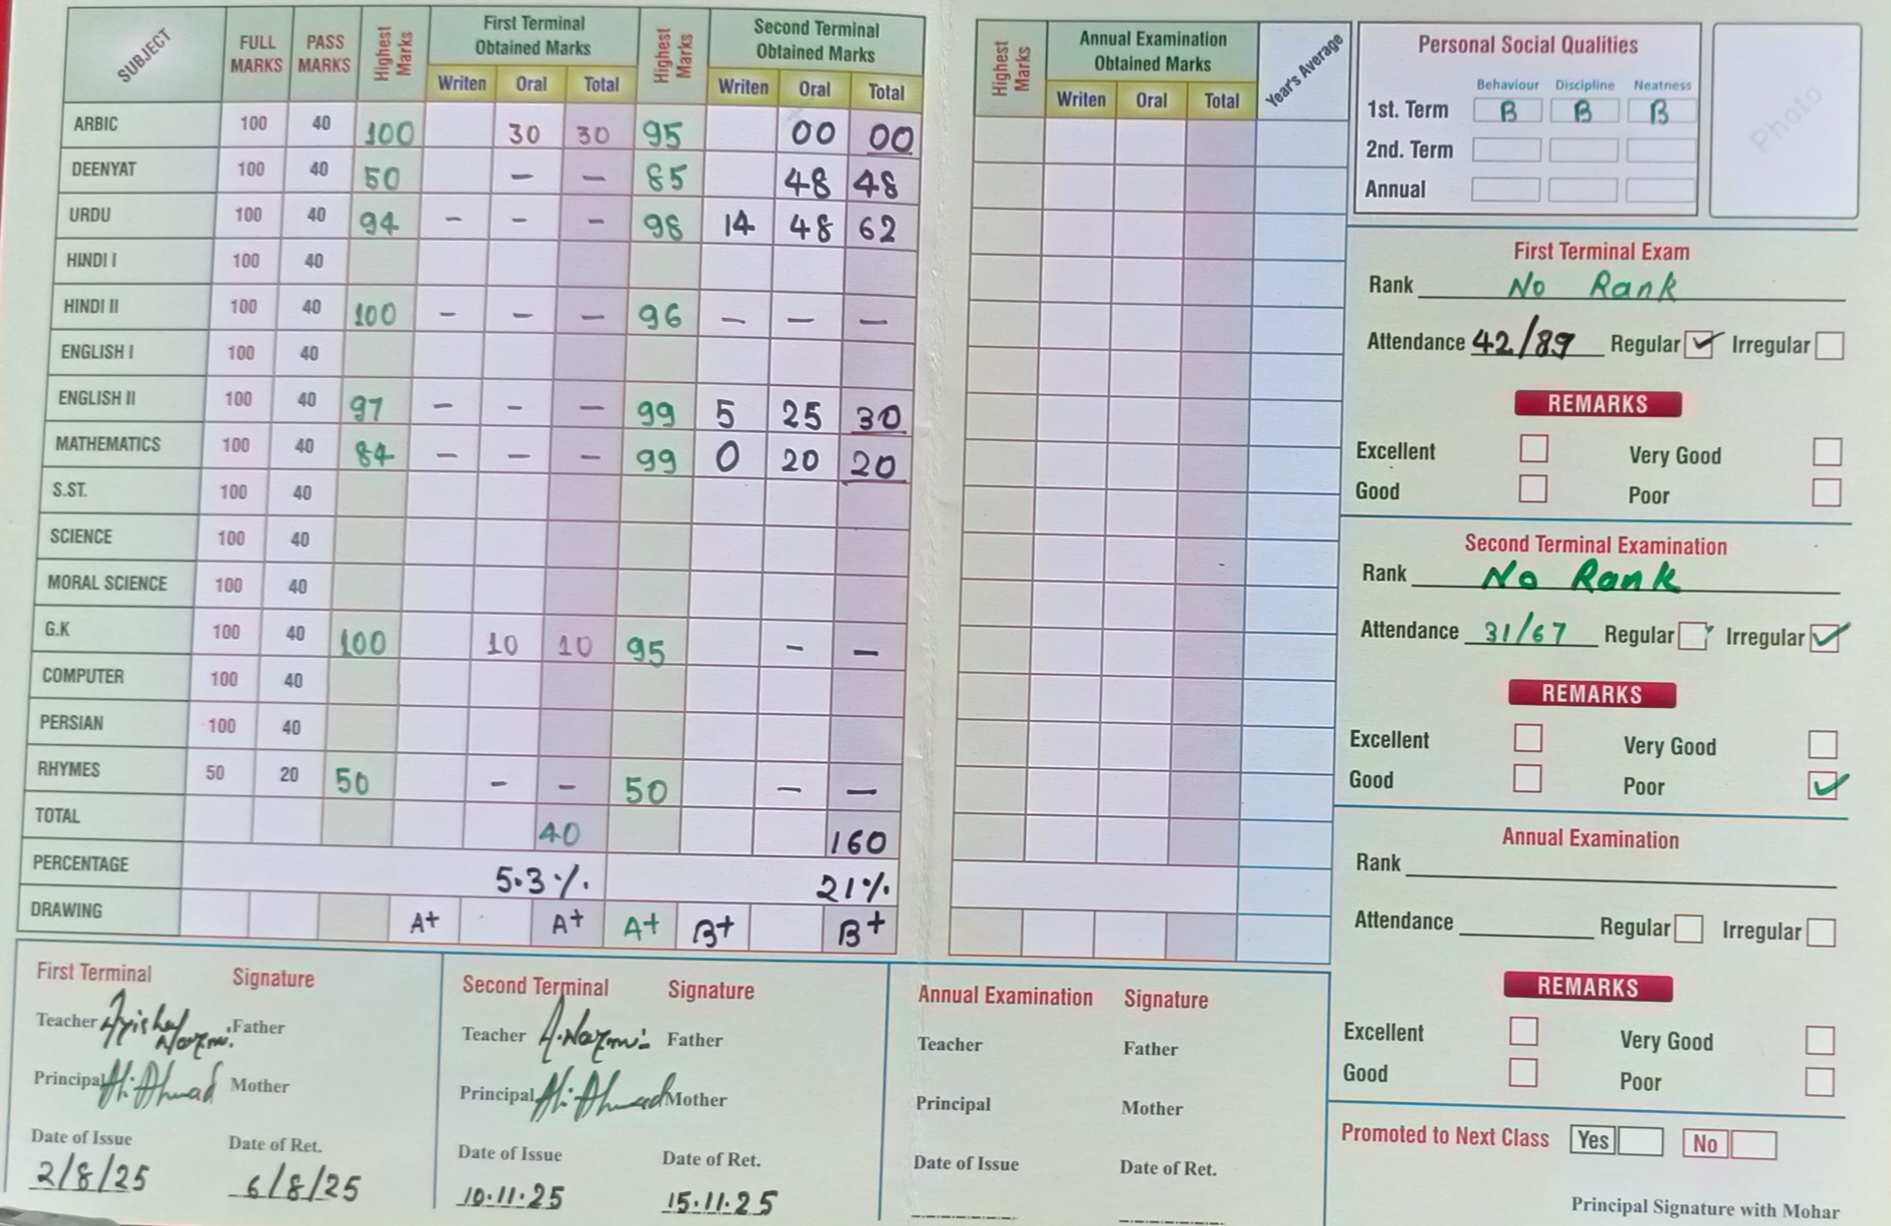 SUBJECT FULL MARKS PASS MARKS Highest Marks First Terminal Obtained Marks Highest Marks Second Terminal Obtained Marks
Writen Oral Total Writen Oral Total
ARBIC 100 40 100 30 30 95 00 00
DEENYAT 100 40 50 – – 85 48 48
URDU 100 40 94 – – – 98 14 48 62
HINDI I 100 40
HINDI II 100 40 100 – – – 96 – – –
ENGLISH I 100 40
ENGLISH II 100 40 97 – – – 99 5 25 30
MATHEMATICS 100 40 84 – – – 99 0 20 20
S.ST. 100 40
SCIENCE 100 40
MORAL SCIENCE 100 40
G.K 100 40 100 10 10 95 – –
COMPUTER 100 40
PERSIAN 100 40
RHYMES 50 20 50 – – 50 – –
TOTAL 40 160
PERCENTAGE 5.3% 21%
DRAWING A+ A+ A+ B+ B+
Highest Marks Annual Examination Obtained Marks Year's Average
Writen Oral Total
Personal Social Qualities
Behaviour Discipline Neatness
1st. Term B B B
2nd. Term
Annual
Photo
First Terminal Exam
Rank No Rank
Attendance 42/89 Regular ✓ Irregular
REMARKS
Excellent Very Good
Good Poor
Second Terminal Examination
Rank No Rank
Attendance 31/67 Regular Irregular ✓
REMARKS
Excellent Very Good
Good Poor ✓
Annual Examination
Rank
Attendance Regular Irregular
REMARKS
Excellent Very Good
Good Poor
Promoted to Next Class Yes No
Principal Signature with Mohar
First Terminal Signature
Teacher Ayisha Nazmi. Father
Principal Ahmad Mother
Date of Issue Date of Ret.
2/8/25 6/8/25
Second Terminal Signature
Teacher A.Nazmi Father
Principal Ahmad Mother
Date of Issue Date of Ret.
10.11.25 15.11.25
Annual Examination Signature
Teacher Father
Principal Mother
Date of Issue Date of Ret.